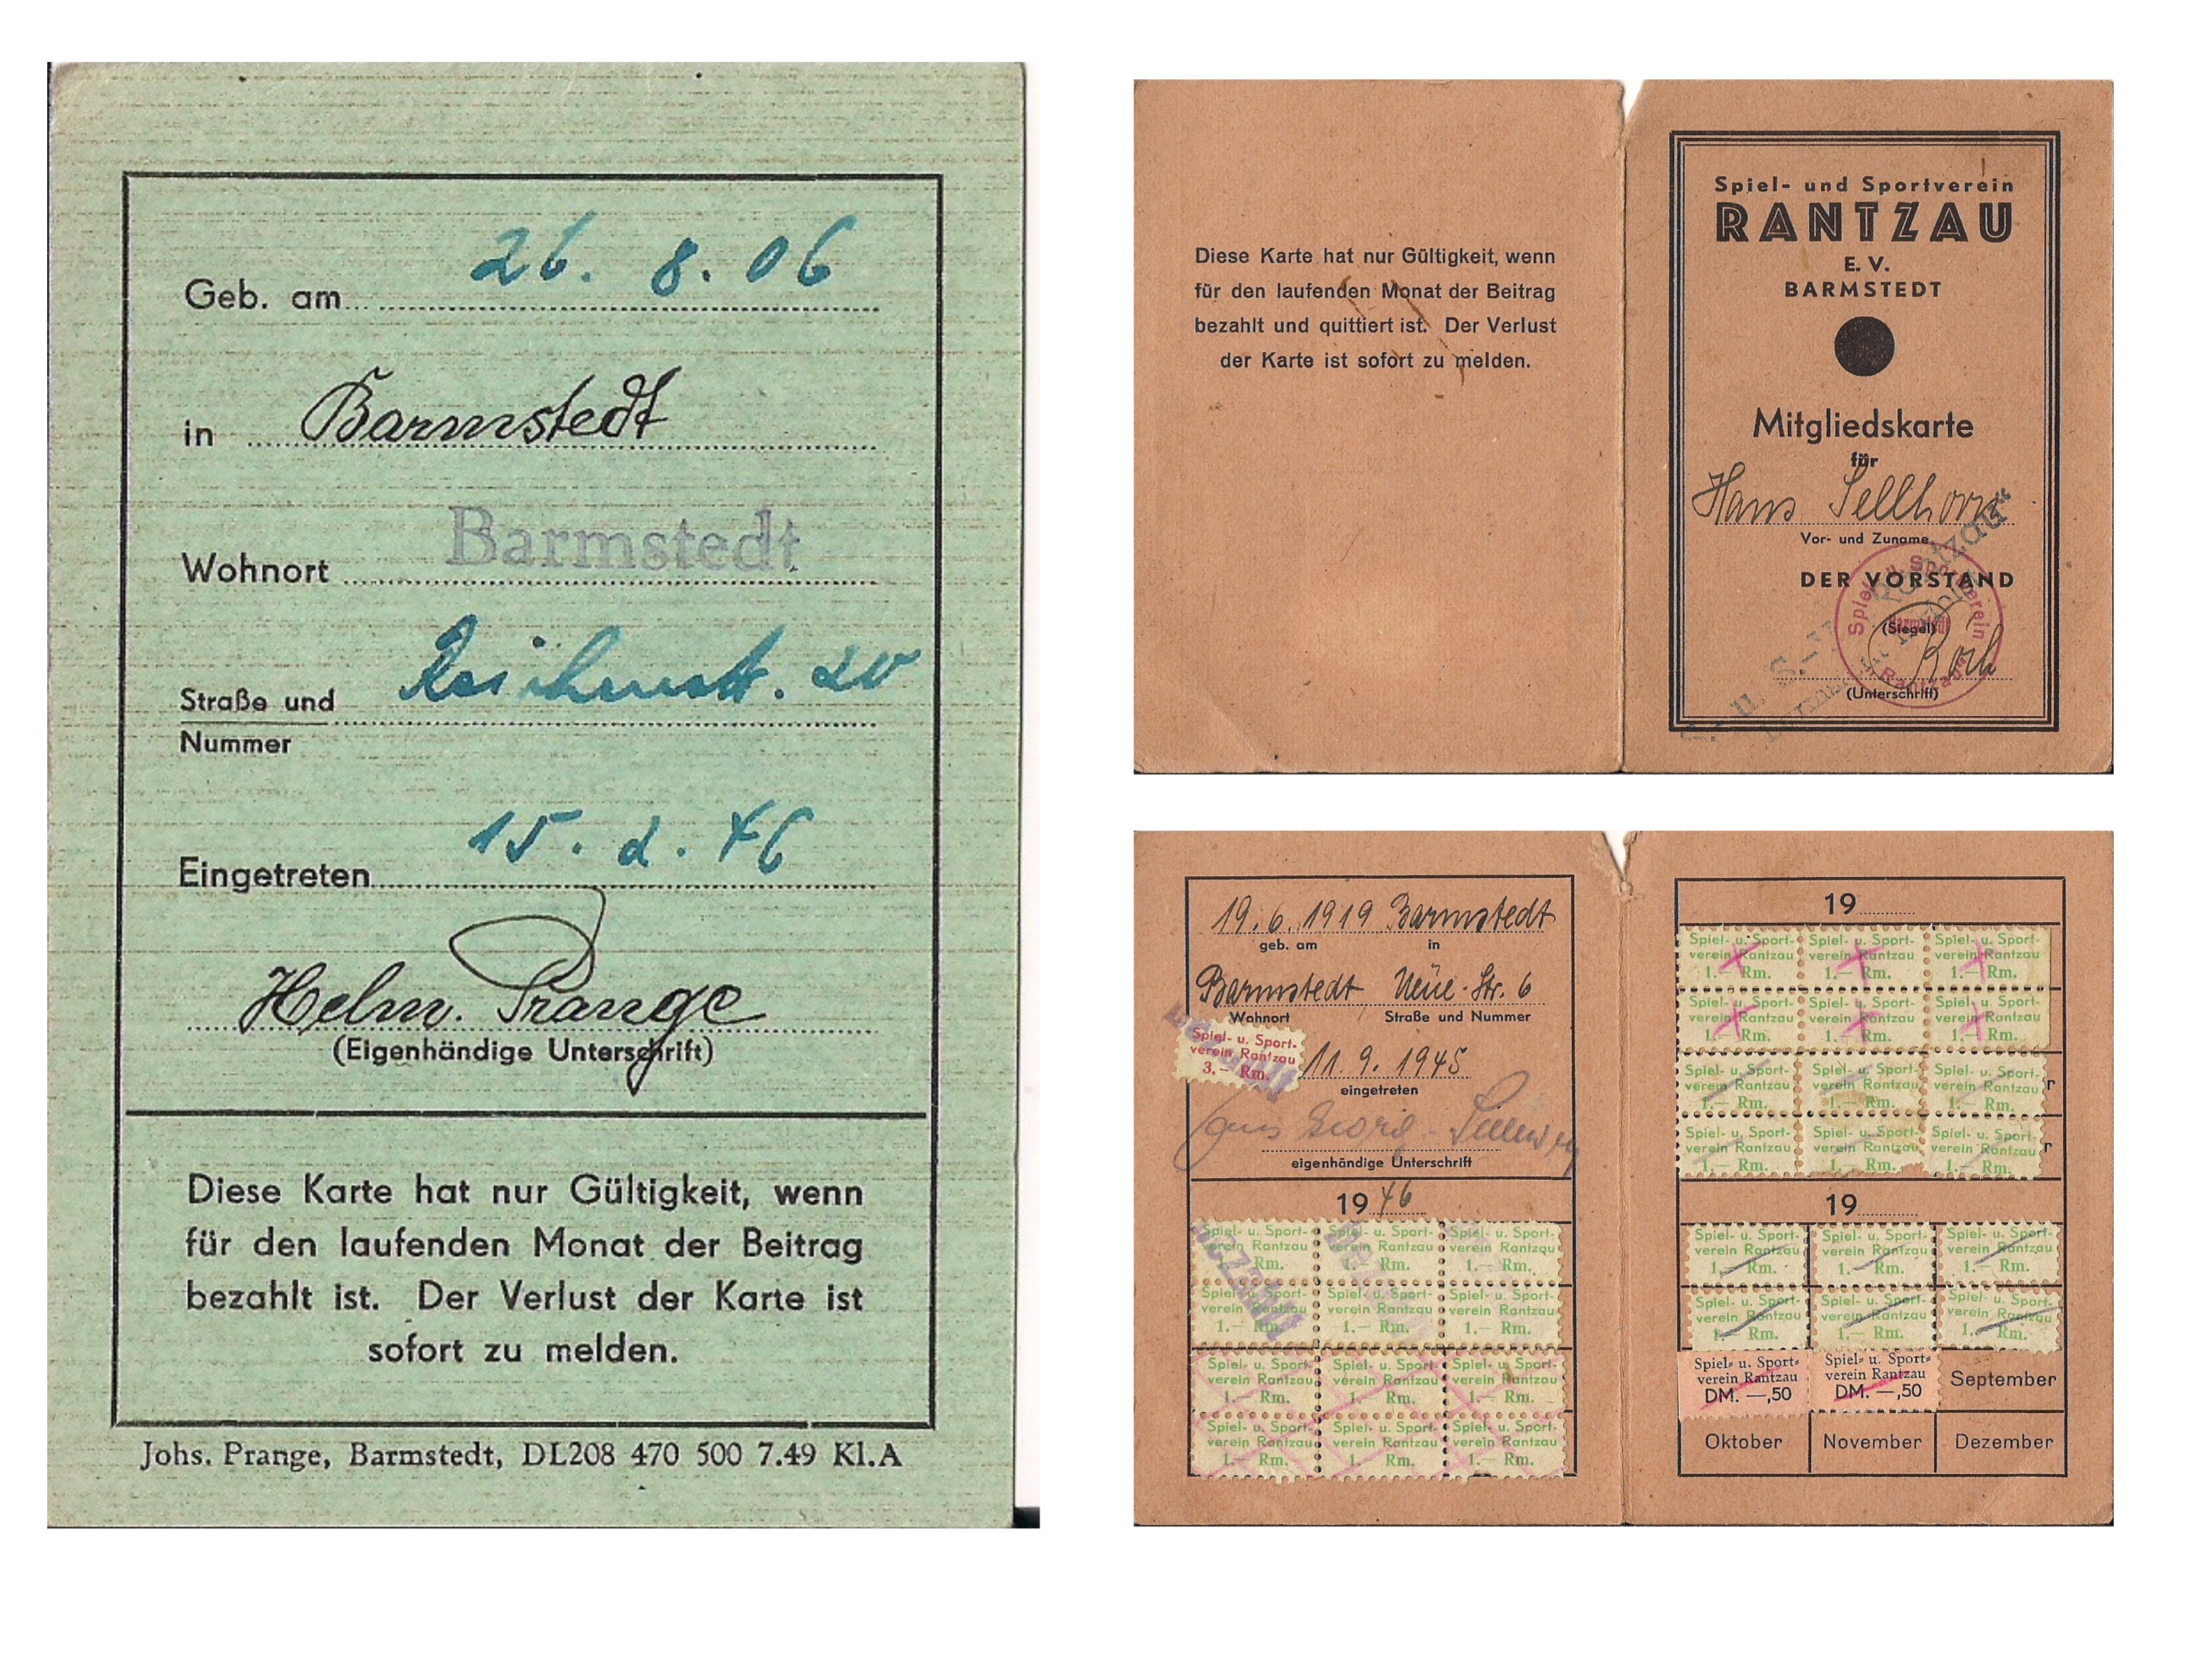 Geb. am 26. 8. 06
in Barmstedt
Wohnort Barmstedt
Straße und Nummer 20
Eingetreten 15. 2. 46
Helm. Prange
(Eigenhändige Unterschrift)
Diese Karte hat nur Gültigkeit, wenn
für den laufenden Monat der Beitrag
bezahlt ist. Der Verlust der Karte ist
sofort zu melden.
Johs. Prange, Barmstedt, DL208 470 500 7.49 Kl.A
Diese Karte hat nur Gültigkeit, wenn
für den laufenden Monat der Beitrag
bezahlt und quittiert ist. Der Verlust
der Karte ist sofort zu melden.
Spiel- und Sportverein
RANTZAU
E. V.
BARMSTEDT
Mitgliedskarte
für
Hans Sellhorn
Vor- und Zuname
DER VORSTAND
Spiel- u. Sportverein Rantzau
Barmstedt
(Siegel)
(Unterschrift)
19. 6. 1919 Barmstedt
geb. am in
Barmstedt Neue-Str. 6
Wohnort Straße und Nummer
Spiel- u. Sport-
verein Rantzau
3.— Rm.
11. 9. 1945
eingetreten
Hans Georg
eigenhändige Unterschrift
1946
Spiel- u. Sport- Spiel- u. Sport- Spiel- u. Sport-
verein Rantzau verein Rantzau verein Rantzau
1.— Rm. 1.— Rm. 1.— Rm.
Spiel- u. Sport- Spiel- u. Sport- Spiel- u. Sport-
verein Rantzau verein Rantzau verein Rantzau
1.— Rm. 1.— Rm. 1.— Rm.
Spiel- u. Sport- Spiel- u. Sport- Spiel- u. Sport-
verein Rantzau verein Rantzau verein Rantzau
1.— Rm. 1.— Rm. 1.— Rm.
Spiel- u. Sport- Spiel- u. Sport- Spiel- u. Sport-
verein Rantzau verein Rantzau verein Rantzau
1.— Rm. 1.— Rm. 1.— Rm.
Bezahlt
19
Spiel- u. Sport- Spiel- u. Sport- Spiel- u. Sport-
verein Rantzau verein Rantzau verein Rantzau
1.— Rm. 1.— Rm. 1.— Rm.
Spiel- u. Sport- Spiel- u. Sport- Spiel- u. Sport-
verein Rantzau verein Rantzau verein Rantzau
1.— Rm. 1.— Rm. 1.— Rm.
Spiel- u. Sport- Spiel- u. Sport- Spiel- u. Sport-
verein Rantzau verein Rantzau verein Rantzau
1.— Rm. 1.— Rm. 1.— Rm.
Spiel- u. Sport- Spiel- u. Sport- Spiel- u. Sport-
verein Rantzau verein Rantzau verein Rantzau
1.— Rm. 1.— Rm. 1.— Rm.
19
Spiel- u. Sport- Spiel- u. Sport- Spiel- u. Sport-
verein Rantzau verein Rantzau verein Rantzau
1.— Rm. 1.— Rm. 1.— Rm.
Spiel- u. Sport- Spiel- u. Sport- Spiel- u. Sport-
verein Rantzau verein Rantzau verein Rantzau
1.— Rm. 1.— Rm. 1.— Rm.
Spiel- u. Sport- Spiel- u. Sport-
verein Rantzau verein Rantzau September
DM. —,50 DM. —,50
Oktober November Dezember